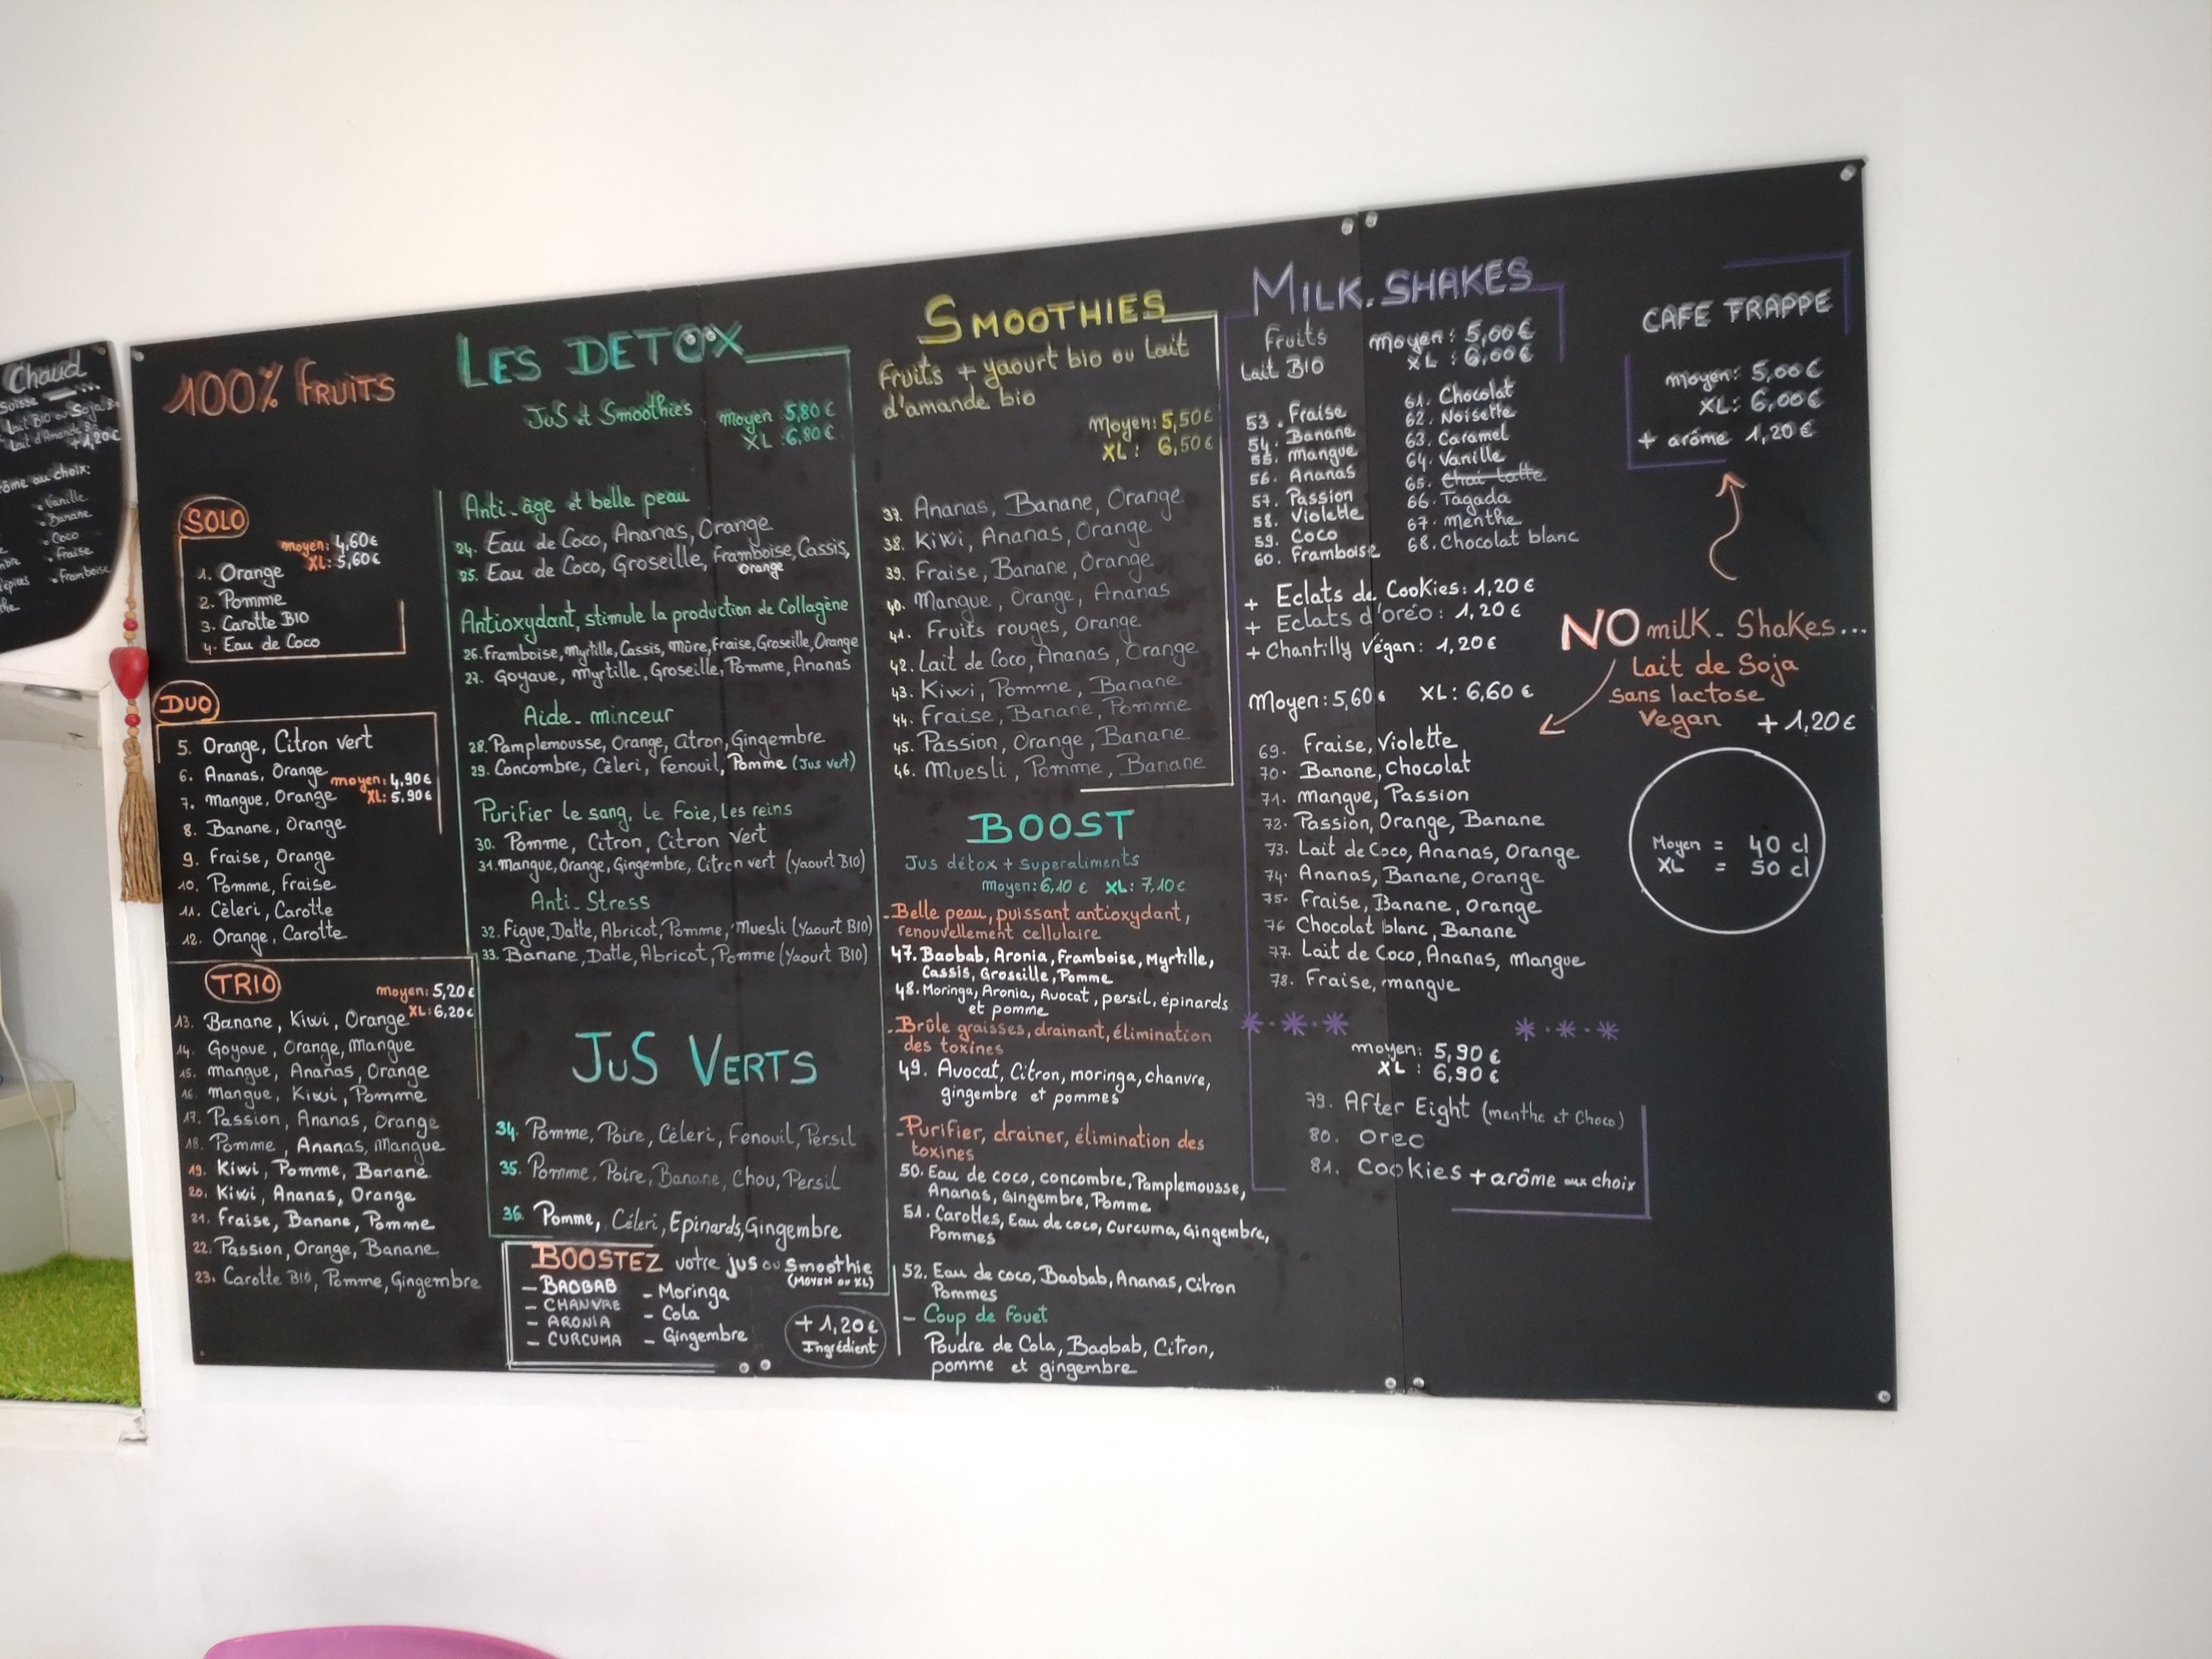 Chaud
Suisse
Lait BIO ou Soja Bio
Lait d'Amande Bio
+1,20€
au choix:
• Vanille
• Banane
• Coco
• Fraise
• Framboise
100% FRUITS
SOLO
moyen: 4,60€
XL: 5,60€
1. Orange
2. Pomme
3. Carotte BIO
4. Eau de Coco
DUO
5. Orange, Citron vert
6. Ananas, Orange
moyen: 4,90€
7. Mangue, Orange
XL: 5,90€
8. Banane, Orange
9. Fraise, Orange
10. Pomme, Fraise
11. Cèleri, Carotte
12. Orange, Carotte
TRIO
moyen: 5,20€
XL: 6,20€
13. Banane, Kiwi, Orange
14. Goyave, Orange, Mangue
15. Mangue, Ananas, Orange
16. Mangue, Kiwi, Pomme
17. Passion, Ananas, Orange
18. Pomme, Ananas, Mangue
19. Kiwi, Pomme, Banane
20. Kiwi, Ananas, Orange
21. Fraise, Banane, Pomme
22. Passion, Orange, Banane
23. Carotte BIO, Pomme, Gingembre
LES DETOX
Jus et Smoothies
moyen 5,80€
XL :6,80€
Anti-âge et belle peau
24. Eau de Coco, Ananas, Orange
25. Eau de Coco, Groseille, Framboise, Cassis,
Orange
Antioxydant, stimule la production de Collagène
26. Framboise, Myrtille, Cassis, Mûre, Fraise, Groseille, Orange
27. Goyave, Myrtille, Groseille, Pomme, Ananas
Aide-minceur
28. Pamplemousse, Orange, Citron, Gingembre
29. Concombre, Cèleri, Fenouil, Pomme (Jus vert)
Purifier le sang, le Foie, les reins
30. Pomme, Citron, Citron Vert
31. Mangue, Orange, Gingembre, Citron vert (Yaourt BIO)
Anti-Stress
32. Figue, Datte, Abricot, Pomme, Muesli (Yaourt BIO)
33. Banane, Datte, Abricot, Pomme (Yaourt BIO)
JUS VERTS
34. Pomme, Poire, Cèleri, Fenouil, Persil
35. Pomme, Poire, Banane, Chou, Persil
36. Pomme, Céleri, Epinards, Gingembre
BOOSTEZ votre jus ou smoothie
(MOYEN OU XL)
- BAOBAB
- CHANVRE
- ARONIA
- CURCUMA
- Moringa
- Cola
- Gingembre
+1,20€
Ingrédient
SMOOTHIES
Fruits + yaourt bio ou Lait
d'amande bio
Moyen: 5,50€
XL: 6,50€
37. Ananas, Banane, Orange
38. Kiwi, Ananas, Orange
39. Fraise, Banane, Orange
40. Mangue, Orange, Ananas
41. Fruits rouges, Orange
42. Lait de Coco, Ananas, Orange
43. Kiwi, Pomme, Banane
44. Fraise, Banane, Pomme
45. Passion, Orange, Banane
46. Muesli, Pomme, Banane
BOOST
Jus détox + Superaliments
moyen: 6,10 € XL: 7,10€
- Belle peau, puissant antioxydant,
renouvellement cellulaire
47. Baobab, Aronia, Framboise, Myrtille,
Cassis, Groseille, Pomme
48. Moringa, Aronia, Avocat, persil, épinards
et pomme
- Brûle graisses, drainant, élimination
des toxines
49. Avocat, Citron, moringa, chanvre,
gingembre et pommes
- Purifier, drainer, élimination des
toxines
50. Eau de coco, concombre, Pamplemousse,
Ananas, Gingembre, Pomme
51. Carottes, Eau de coco, Curcuma, Gingembre,
Pommes
52. Eau de coco, Baobab, Ananas, Citron
Pommes
- Coup de fouet
Poudre de Cola, Baobab, Citron,
pomme et gingembre
MILK.SHAKES
Fruits
Lait BIO
Moyen: 5,00€
XL : 6,00€
53. Fraise
54. Banane
55. Mangue
56. Ananas
57. Passion
58. Violette
59. Coco
60. Framboise
61. Chocolat
62. Noisette
63. Caramel
64. Vanille
65. Chai latte
66. Tagada
67. Menthe
68. Chocolat blanc
+ Eclats de Cookies: 1,20 €
+ Eclats d'oréo: 1,20 €
+ Chantilly Végan: 1,20€
Moyen: 5,60€ XL: 6,60 €
69. Fraise, Violette
70. Banane, Chocolat
71. Mangue, Passion
72. Passion, Orange, Banane
73. Lait de Coco, Ananas, Orange
74. Ananas, Banane, Orange
75. Fraise, Banane, Orange
76. Chocolat blanc, Banane
77. Lait de Coco, Ananas, Mangue
78. Fraise, mangue
moyen: 5,90€
XL : 6,90€
79. After Eight (menthe et Choco)
80. Oreo
81. Cookies + arôme aux choix
CAFE FRAPPE
Moyen: 5,00€
XL: 6,00€
+ arôme 1,20€
NO milk-Shakes...
Lait de Soja
Sans lactose
Vegan +1,20€
Moyen = 40 cl
XL = 50 cl